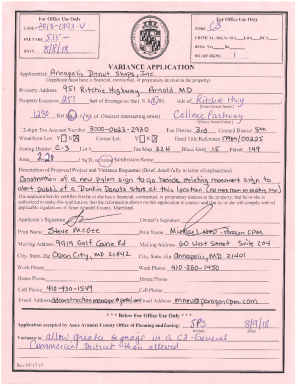 For Office Use Only
CASE # 2018-0193-V
FEE PAID 535-
DATE 8/8/18
For Office Use Only
ZONE C3
CRITICAL AREA:
NO. OF SIGNS 1
VARIANCE APPLICATION
Applicant(s): Annapolis Donut Shops, Inc.
(Applicant must have a financial, contractual, or proprietary interest in the property)
Property Address: 951 Ritchie Highway Arnold MD
Property Location: 251 feet of frontage on the side of Ritchie Hwy
1230 feet (Nearest intersecting street) College Parkway
12-digit Tax Account Number 3000-0623-2930 Tax District 3rd Council District 5th
Waterfront Lot: Y Corner Lot: Y Deed Title Reference
Zoning District: C-3 Lot # Tax Map 32H Block/Grid 15 Parcel 149
Area (Sq Ft or Acres) Subdivision Name
Description of Proposed Project and Variance Requested (Brief, detail fully in letter of explanation)
Construction of a new pylon sign to go beside existing monument sign to
alert public of a Dunkin Donuts store at this location
The applicant hereby certifies that he or she has a financial, contractual, or proprietary interest in the property; that he or she is
authorized to make this application; that the information shown on this application is correct; and that he or she will comply with all
applicable regulations of Anne Arundel County, Maryland.
Applicant's Signature Owner's Signature
Print Name Steve McGee Print Name Michael Neu - Paragon CPM
Mailing Address 9919 Golf Course Rd Mailing Address 60 West Street Suite 204
City, State, Zip Ocean City, MD 21842 City, State, Zip Annapolis, MD 21401
Work Phone Work Phone 410-260-1450
Home Phone Home Phone
Cell Phone 410-430-1549 Cell Phone
Email Address Email Address mneu@paragoncpm.com
*** Below For Office Use Only ***
Application accepted by Anne Arundel County Office of Planning and Zoning: 8/9/18
Initials Date
Variance to allow greater signage in a C3-General
Commercial District than allowed.